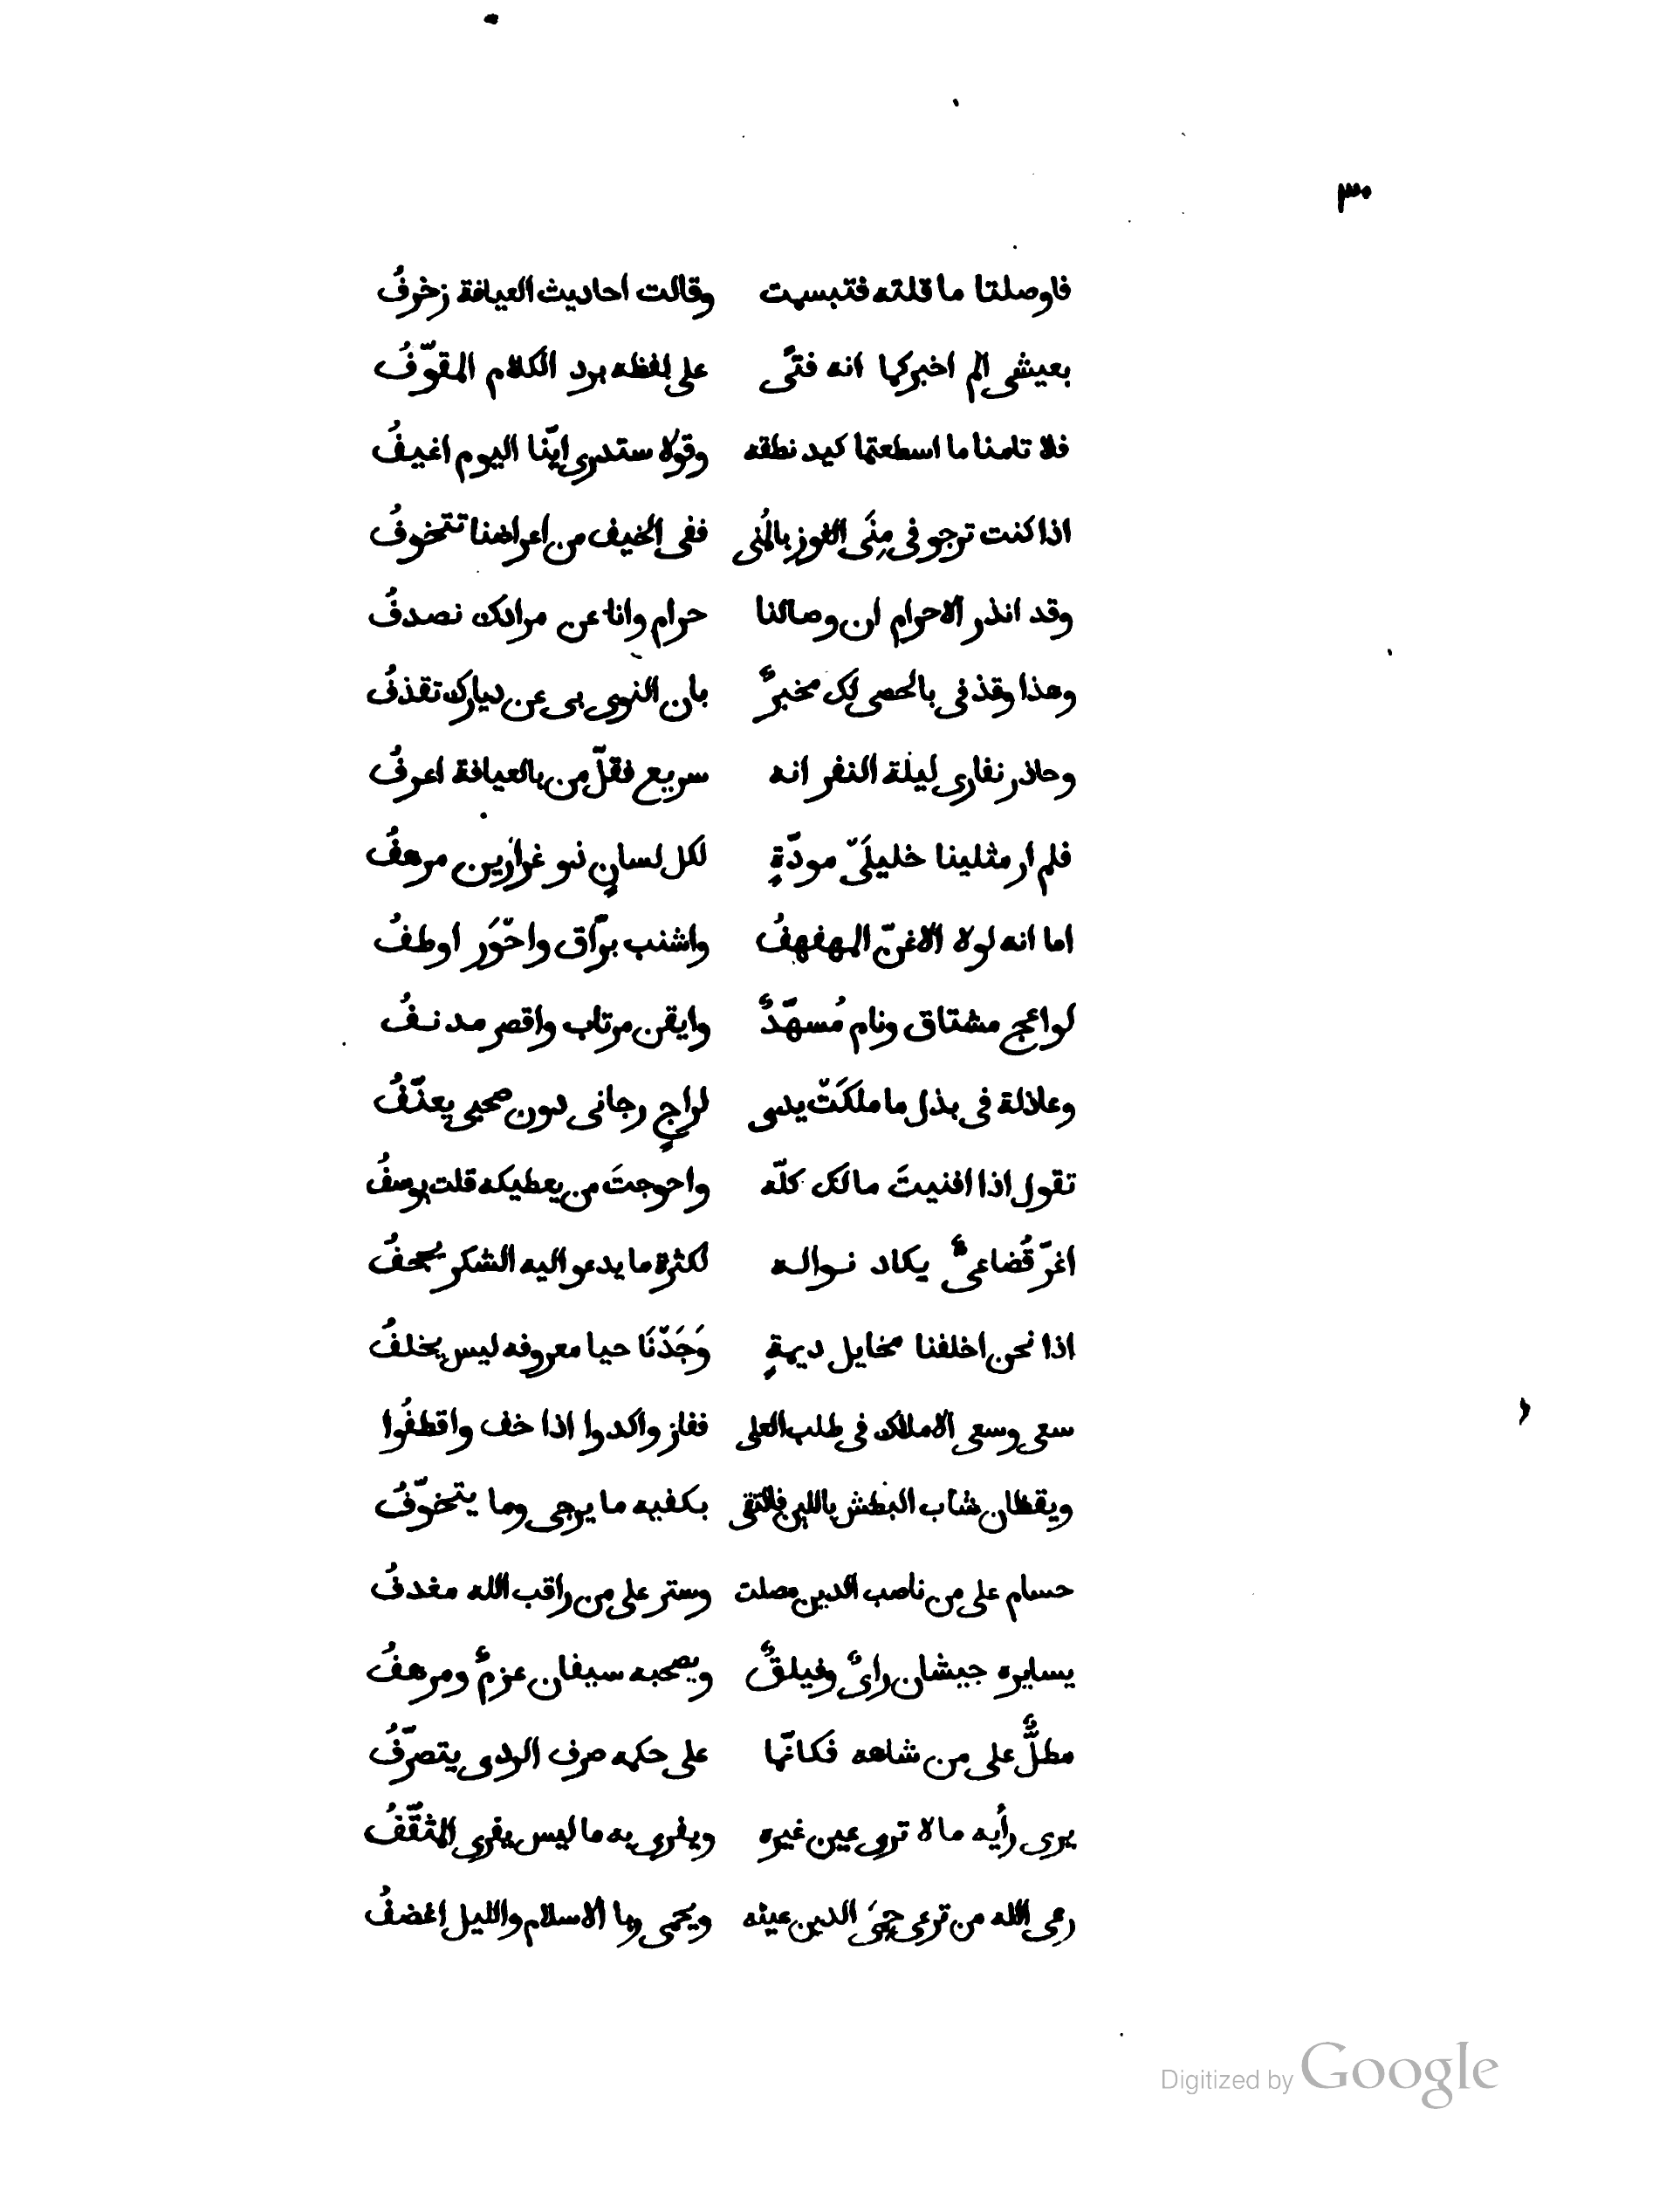 ٣٠
فاوصلتا ما قلته فتبسمت وقالت احاديث العيافة زخرفُ
بعيشى الم اخبركما انه فتًى على لفظه برد الكلام المفوّفُ
فلا تامنا ما اسطعتما كيد نطقه وقولا ستدرى ايّنا اليوم اعيفُ
اذا كنت ترجو فى مِنَى الفوز بالمُنى ففى الخيف من اعراضنا تتخوفُ
وقد انذر الاحرام ان وصالنا حرام وانا عن مرادك نصدفُ
وهذا وقذفى بالحصى لك مخبرٌ بان النوى بى عن ديارك تقذفُ
وحاذر نفارى ليلة النفر انه سريع فقلّ من بالعيافة اعرفُ
فلم ار مثلينا خليلَىّ مودّةٍ لكل لسانٍ ذو غرارين مرهفُ
اما انه لولا الاغنّ المهفهفُ واشنب برّاق واحْوَر اوطفُ
لواعج مشتاق ونام مُسهّدٌ وايقن مرتاب واقصر مدنفُ
وعاذلة فى بذل ما ملكَتْ يدى لراجٍ رجانى دون صحبى يعنّفُ
تقول اذا افنيتَ مالك كلّه واحوجتَ من يعطيكه قلت يوسفُ
اغرّ قُضاعىٌ يكاد نواله لكثرة ما يدعو اليه الشكر يجحفُ
اذا نحن اخلفنا مخايل ديمةٍ وَجَدْنَا حيا معروفه ليس يخلفُ
سعى وسعى الاملاك فى طلب العلى ففاز واكدوا اذا خف واقطفُوا
ويقظان شاب البطش باللين فالتقى بكفيه ما يرجى وما يتخوّفُ
حسام على من ناصب الدين مصلت وستر على من راقب الله مغدفُ
يسايره جيشان راىٌ وفيلقٌ ويصحبه سيفان عزمٌ ومرهفُ
مطلٌّ على من شاءه فكانّما على حكمه صرف الردى يتصرّفُ
يرى رأيه ما لا ترى عين غيره ويفرى به ما ليس يفرى المثقّفُ
رعى الله من ترعى حِمَى الدين عينه ويحمى ربا الاسلام والليل اغضفُ
Digitized by Google